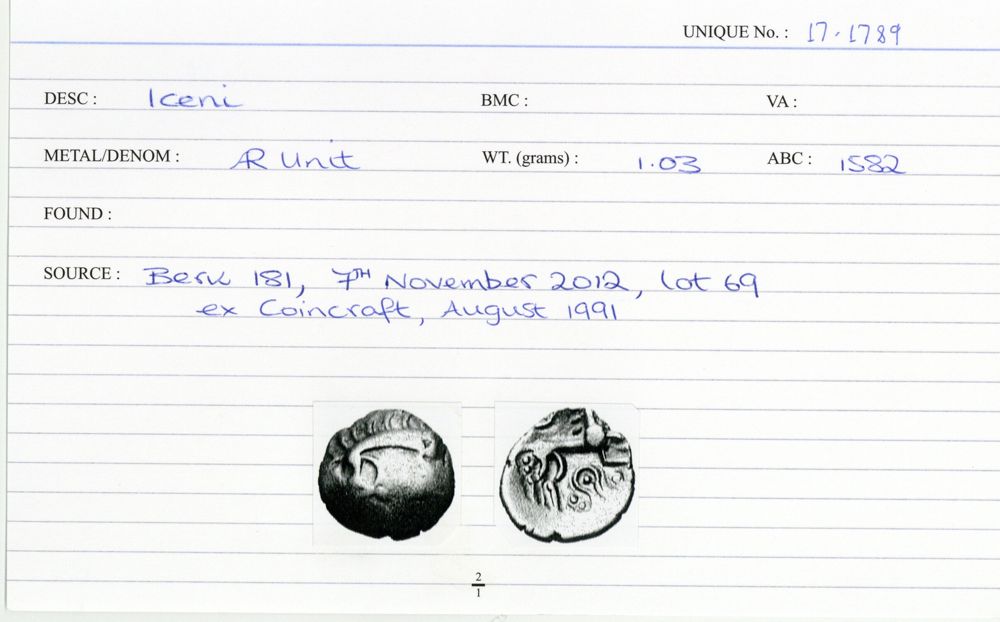 UNIQUE No. : 17.1789
DESC : Iceni BMC : VA :
METAL/DENOM : AR Unit WT. (grams) : 1.03 ABC : 1582
FOUND :
SOURCE : Berk 181, 7TH November 2012, lot 69
ex Coincraft, August 1991
2
1